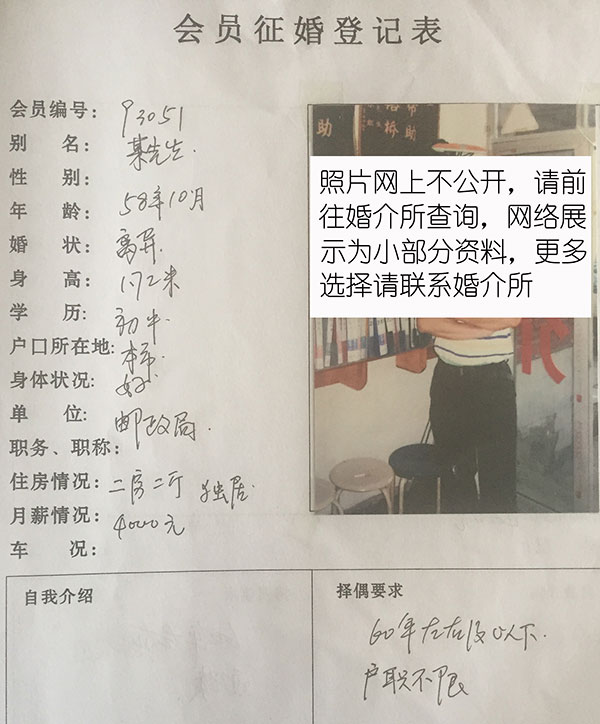 会员征婚登记表
会员编号：93051
别 名：某先生.
性 别：
年 龄：58年10月
婚 状：离异.
身 高：1.72米
学 历：初中
户口所在地：本市
身体状况：好
单 位：邮政局.
职务、职称：
住房情况：二房二厅 独居
月薪情况：4000元
车 况：
助
帮助
桥
照片网上不公开，请前
往婚介所查询，网络展
示为小部分资料，更多
选择请联系婚介所
自我介绍
择偶要求
60年左右及以下.
户职不限